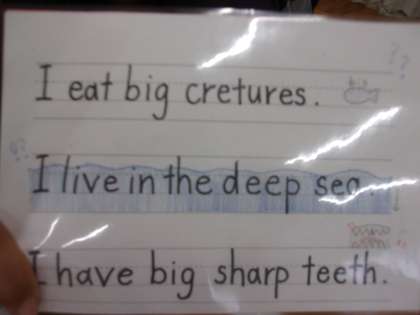 I eat big cretures.
I live in the deep sea.
I have big sharp teeth.